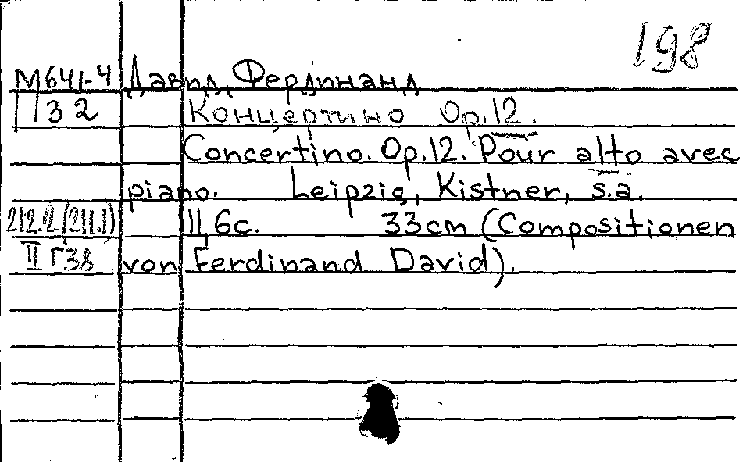 198
М641-4 Давид, Фердинанд
П32 Концертино Op.12.
Concertino. Op.12. Pour alto avec
piano. Leipzig, Kistner, s.a.
212.2(211.1) 11,6c. 33cm (Compositionen
II Г38 von Ferdinand David).